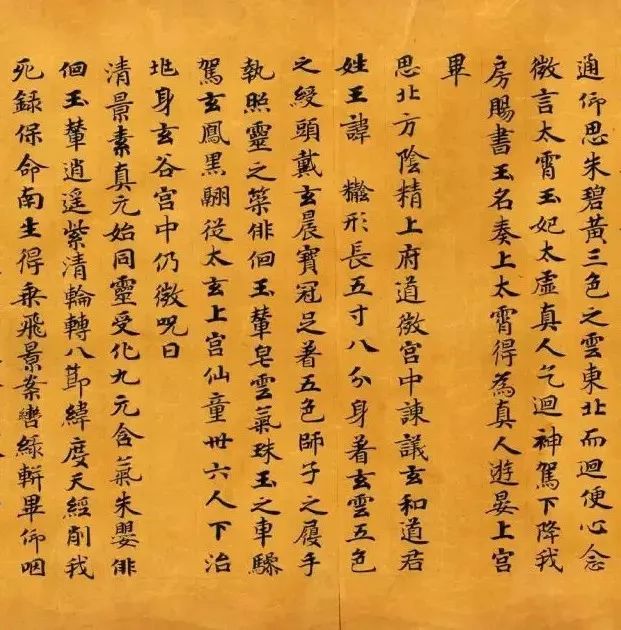 通仰思朱碧黃三色之雲東北而迴便心念
微言太霄玉妃太虛真人乞迴神駕下降我
房賜書玉名奏上太霄得為真人遊晏上宮
畢
思北方陰精上府道微宮中諫議玄和道君
姓王諱 形長五寸八分身着玄雲五色
之綬頭戴玄晨寶冠足着五色師子之履手
執照靈之策俳佪玉輦皂雲氣珠玉之車驂
駕玄鳳黑翮從太玄上宮仙童卅六人下治
地身玄谷宮中仍微呪曰
清景素真元始同靈受化九元含氣朱嬰俳
佪玉輦逍遥紫清輪轉八節緯度天經削我
死録保命南生得乗飛景案轡綠軿畢仰咽